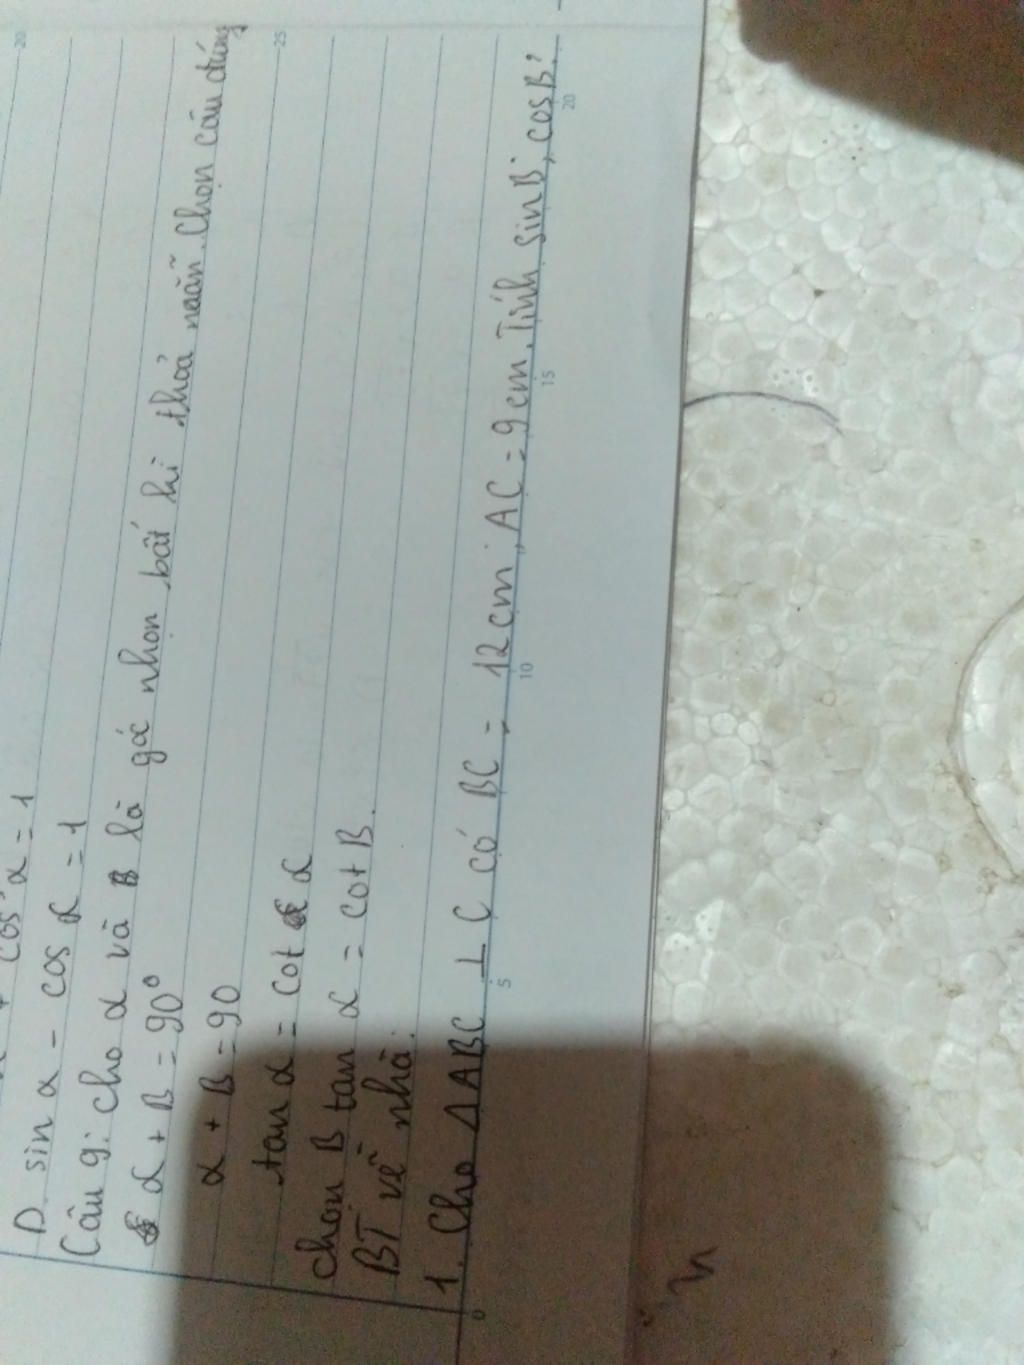 D. sin α - cos α = 1
Câu 9: Cho α và B là góc nhọn bất kì thoả mãn. Chọn câu đúng
α + B = 90°
α + B = 90
tan α = cot α
chọn B tan α = cot B.
BT về nhà:
1. Cho Δ ABC ⊥ C có BC = 12 cm, AC = 9 cm. Tính sin B; cos B?
20
25
0
5
10
15
20